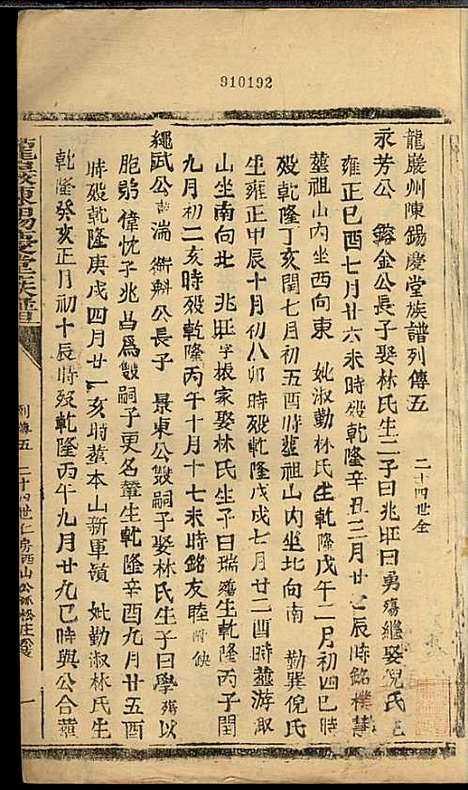 910192
龍巖州陳錫慶堂族譜列傳五　二十四世仝
永芳公　鎔金公長子娶林氏生二子曰兆旺曰勇殤繼娶倪氏生
雍正己酉七月廿六未時殁乾隆辛丑三月廿七辰時銘樸慧
塟祖山内坐西向東　妣淑勤林氏生乾隆戊午二月初四巳時
殁乾隆丁亥閏七月初五酉時塟祖山内坐北向南　勤巽倪氏
生雍正甲辰十月初八卯時殁乾隆戊戌七月廿二酉時塟游取
山坐南向北　兆旺字振家娶林氏生子曰瑞生乾隆丙子閏
九月初二亥時殁乾隆丙午十月十七未時銘友睦
繩武公　衡斟公長子　景東公嗣子娶林氏生子曰學殤以
胞弟偉忱子兆昌爲嗣子更名輦生乾隆辛酉九月廿五酉
時殁乾隆庚戌四月廿一亥時塟本山新軍嶺　妣勤淑林氏生
乾隆癸亥正月初十辰時殁乾隆丙午九月廿九巳時與公合塟
龍巖陳錫慶堂族譜
列傳五　二十四世仁房西山公
一